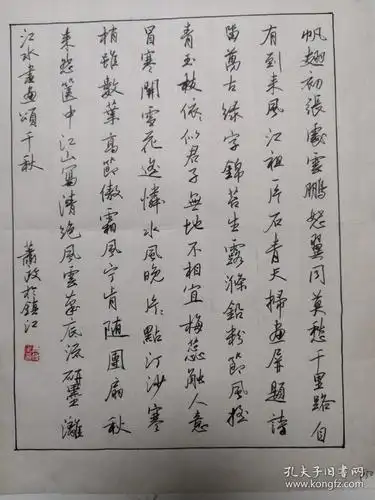 帆翅初張處雲鵬怒翼同莫愁千里路自
有到来風江祖一片石青天掃畫屏題詩
留萬古綠字錦苔生露滌鉛粉節風摇
青玉枝依々似君子無地不相宜梅蕊触人意
冒寒開雪花遥憐水風晚片々點汀沙寒
梢雖數葉高節傲霜風宁肯随團扇秋
来怨箧中江山寫清絶風雲筆底流研墨灕
江水畫畫頌千秋
蕭政於鎮江
孔夫子旧书网
www.kongfz.com